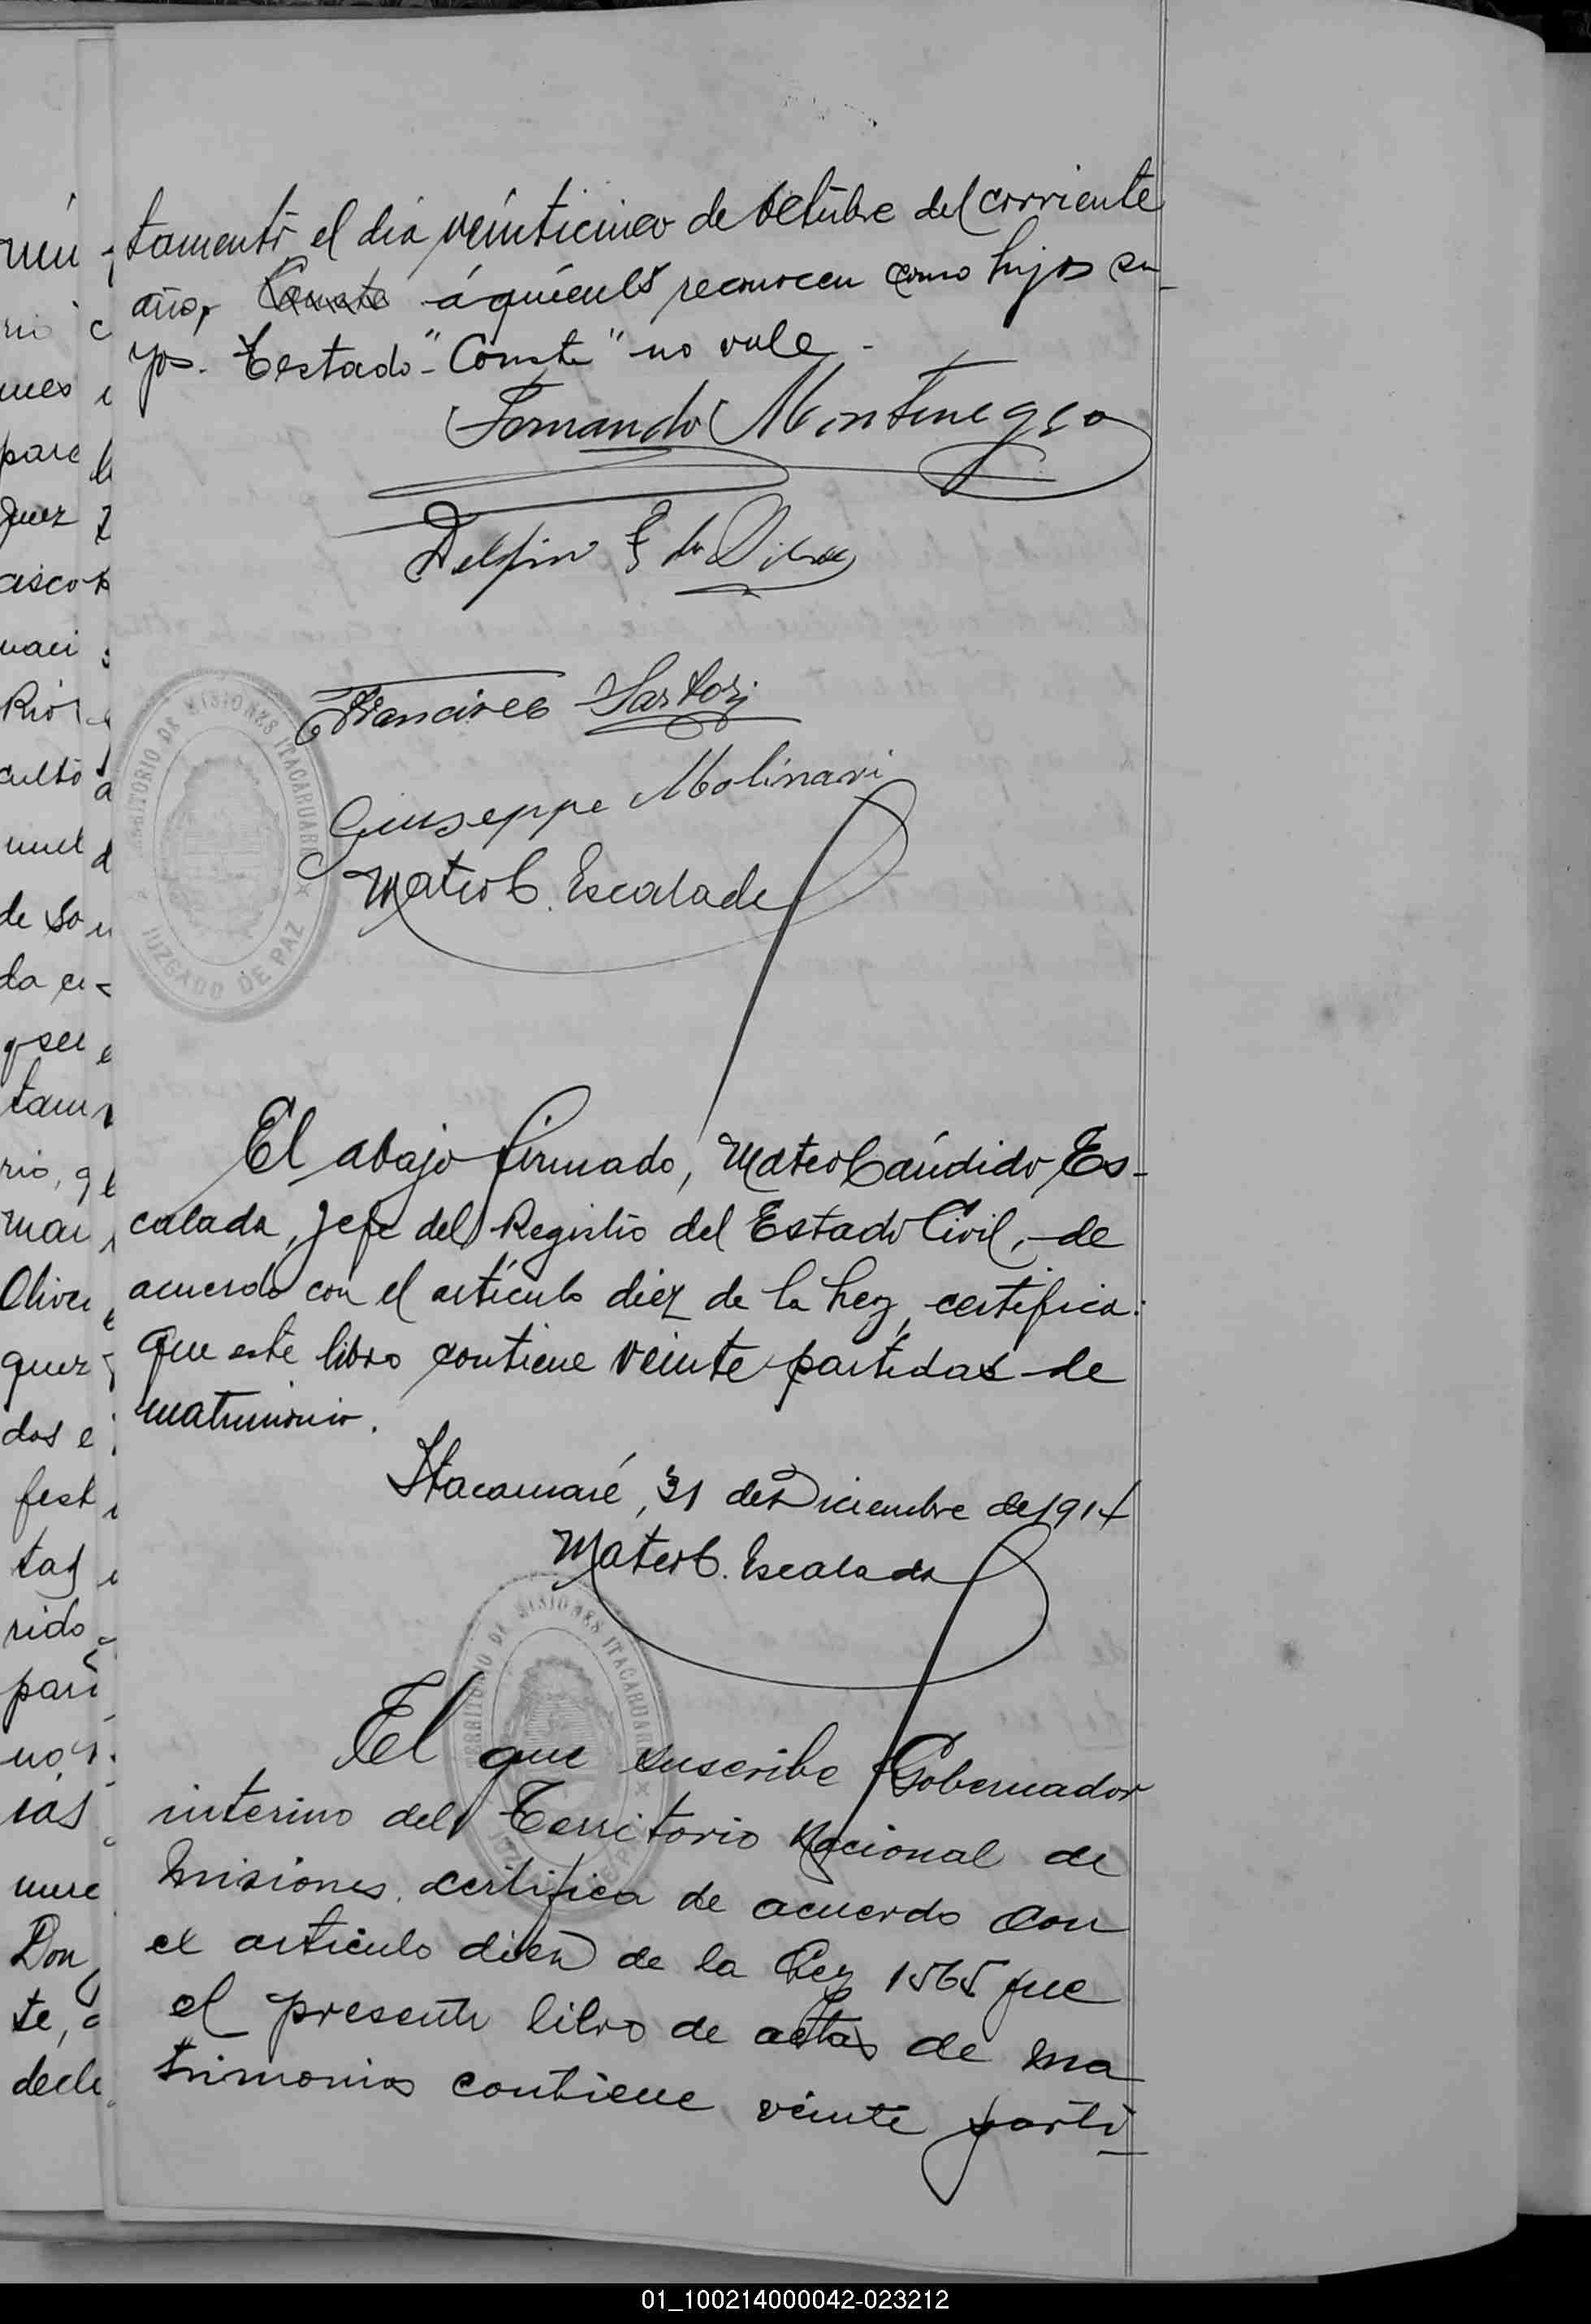 tamente, el día veinticinco de Octubre del corriente
año, Conste á quiénes reconocen como hijos su-
yos. Testado "Conste" no vale.
Fernando Montenegro
Delfin F da Silva
Francisco Sartori
Giuseppe Molinari
Mateo C. Escalada
TERRITORIO DE MISIONES ITACARUARÉ
JUZGADO DE PAZ
El abajo firmado, Mateo Cándido Es-
calada, Jefe del Registro del Estado Civil, de
acuerdo con el artículo diez de la Ley, certifica:
que este libro contiene veinte partidas de
matrimonio.
Itacaruaré, 31 de Diciembre de 1914
Mateo C. Escalada
TERRITORIO DE MISIONES ITACARUARÉ
El que suscribe Gobernador
interino del Territorio Nacional de
Misiones, certifica de acuerdo con
el articulo diez de la Ley 1565 que
el presente libro de actas de ma
trimonios contiene veinte parti-
01_100214000042-023212